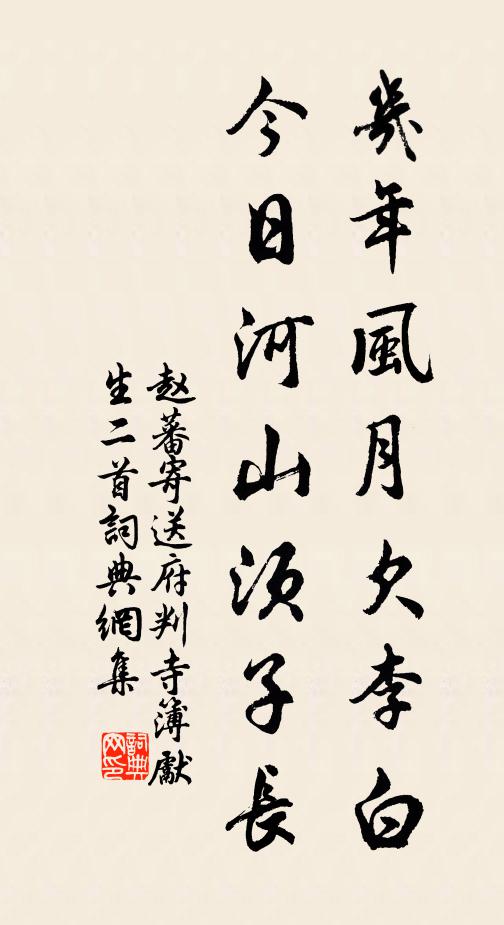 幾年風月欠李白
今日河山須子長
赵蕃寄送府判寺簿獻
生二首詞典網集
詞典网印